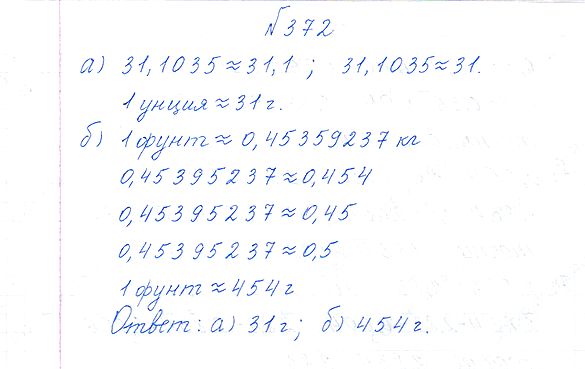 №372
а) 31,1035≈31,1 ; 31,1035≈31.
1 унция≈31г.
б) 1 фунт≈0,45359237 кг
0,45395237≈0,454
0,45395237≈0,45
0,45395237≈0,5
1 фунт≈454г
Ответ: а) 31г; б) 454г.